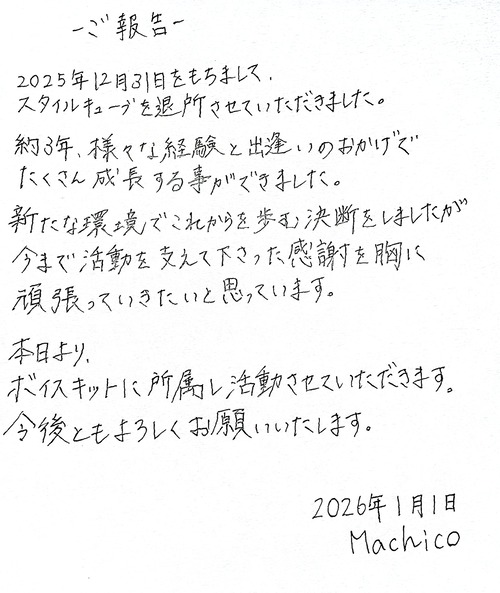 -ご報告-
2025年12月31日をもちまして、
スタイルキューブを退所させていただきました。
約3年、様々な経験と出逢いのおかげで
たくさん成長する事ができました。
新たな環境でこれからを歩む決断をしましたが
今まで活動を支えて下さった感謝を胸に
頑張っていきたいと思っています。
本日より、
ボイスキットに所属し活動させていただきます。
今後ともよろしくお願いいたします。
2026年1月1日
Machico